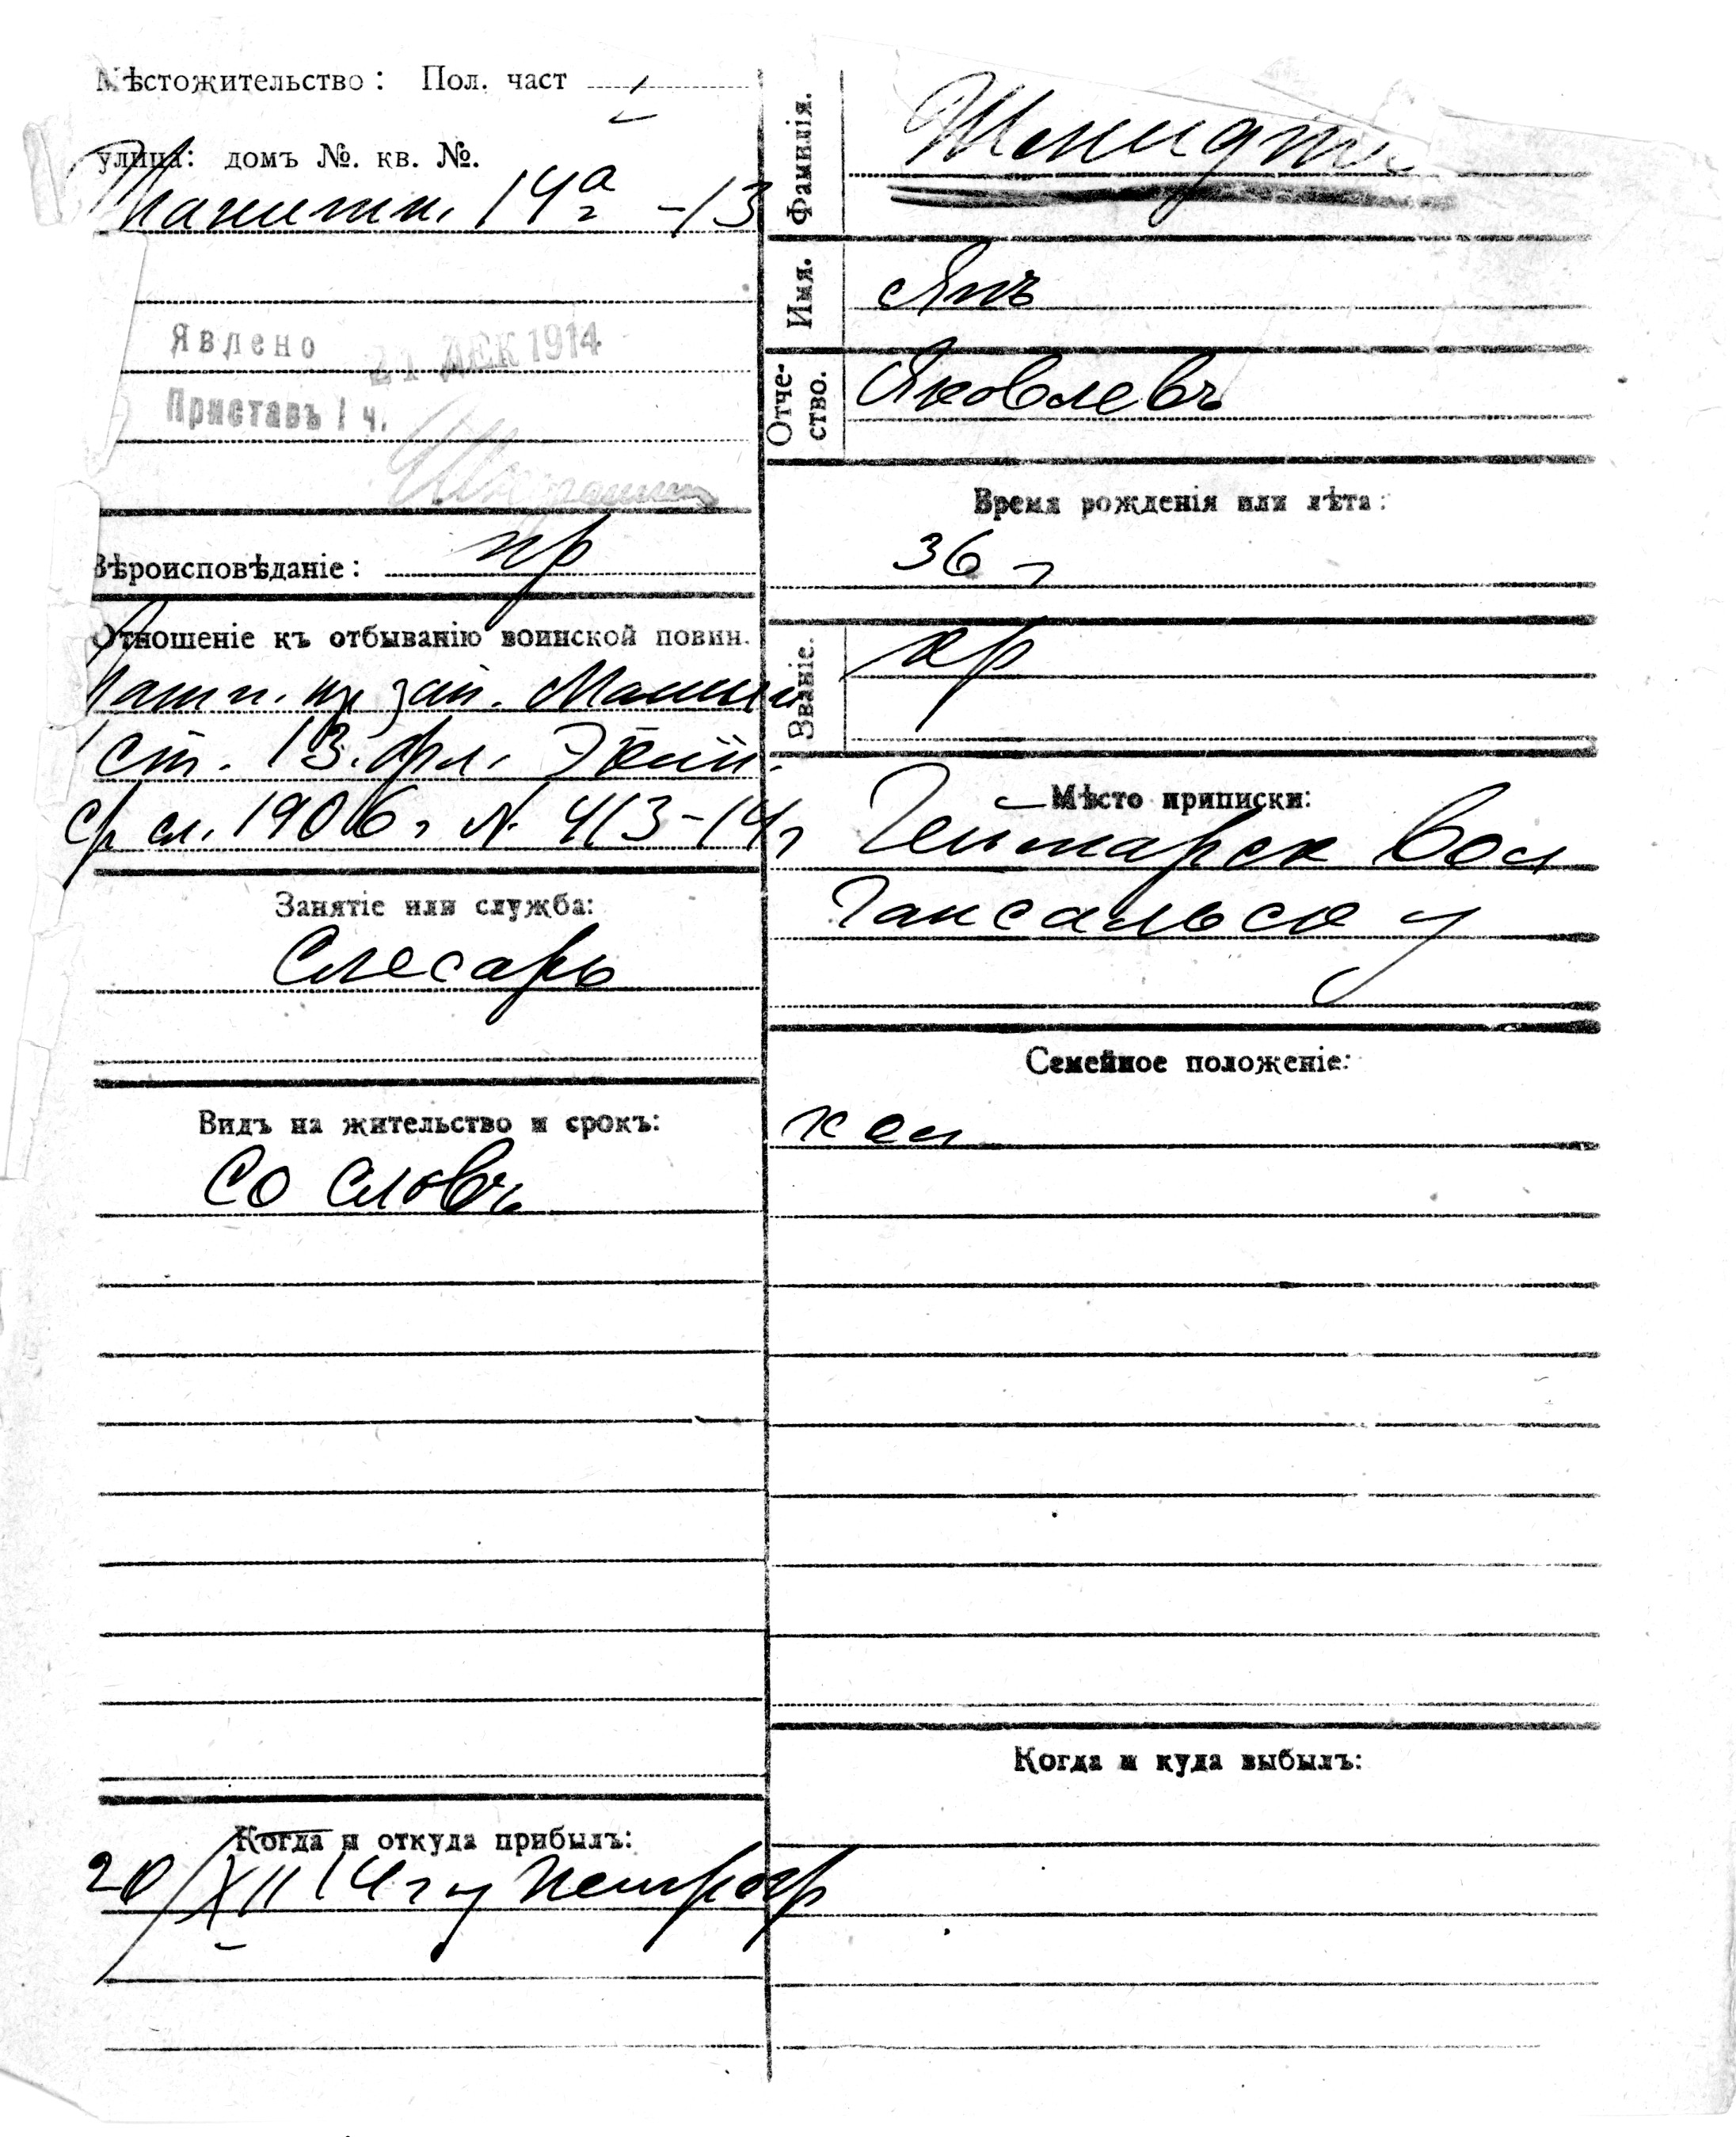 Мѣстожительство: Пол. част I
улица: домъ №. кв. №.
14а - 13
Явлено 21 ДЕК 1914
Приставъ 1 ч.
Вѣроисповѣданіе: пр
Отношеніе къ отбыванію воинской повин.
зап. Машин
ст. 13. фл. Экип.
ср сл. 1906 г N. 413-14 г
Занятіе или служба:
Слесарь
Видъ на жительство и срокъ:
Со словъ
Когда и откуда прибылъ:
20/XII 14 г Петрогр
Фамилія. Шмидтъ
Имя. Янъ
Отчество. Яковлевъ
Время рожденія или лѣта:
36 г
Званіе. кр
Мѣсто приписки:
вол
Гапсальск у
Семейное положеніе:
хол
Когда и куда выбылъ: